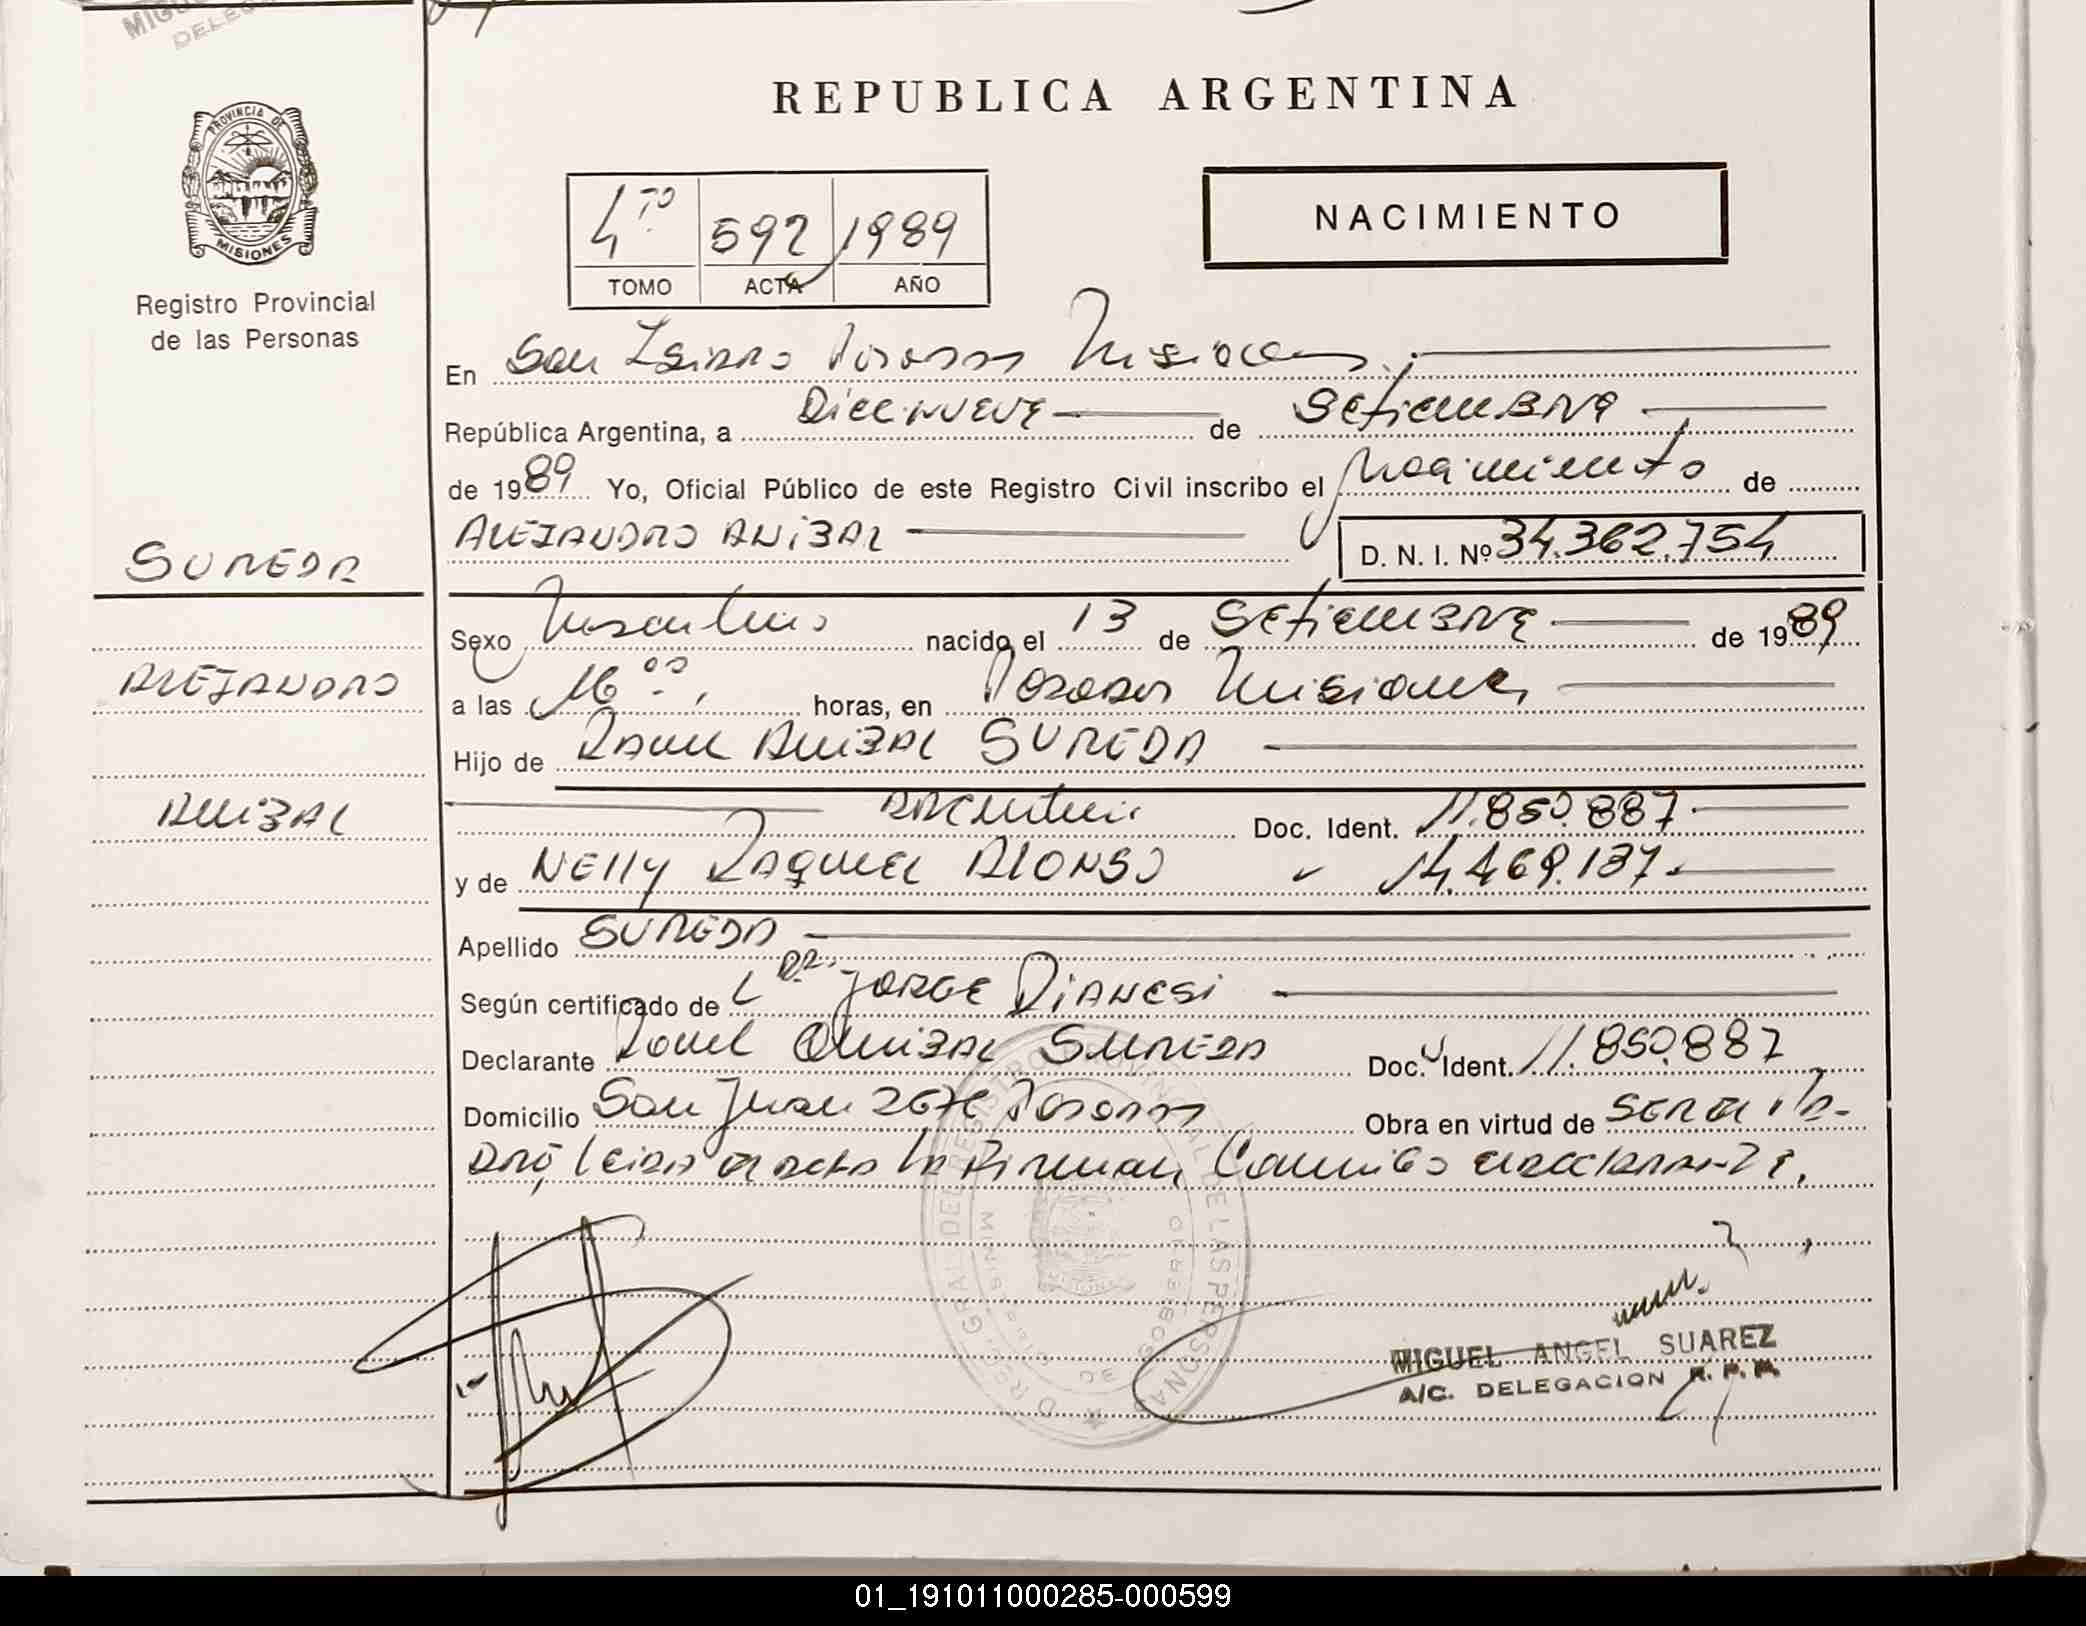 MIGU
DELEG
PROVINCIA DE
MISIONES
Registro Provincial
de las Personas
REPUBLICA ARGENTINA
4to 592 1989
TOMO ACTA AÑO
NACIMIENTO
En San Isidro Posadas Misiones
República Argentina, a Diecinueve de Setiembre
de 1989 Yo, Oficial Público de este Registro Civil inscribo el Nacimiento de
SUREDA
ALEJANDRO ANIBAL D. N. I. Nº 34.362.754
Sexo Masculino nacido el 13 de Setiembre de 1989
ALEJANDRO
a las 16 00 horas, en Posadas Misiones
Hijo de Raul Anibal SUREDA
ANIBAL
Argentino Doc. Ident. 11.850.887
y de NELLY RAQUEL ALONSO 14.469.137
Apellido SUREDA
Según certificado de Dr. JORGE DIANESI
Declarante Raul Anibal Sureda Doc. Ident. 11.850.887
Domicilio San Juan Posadas Obra en virtud de ser el Pa-
dre, leida el acta la firman conmigo el declarante.
MIGUEL ANGEL SUAREZ
A/C. DELEGACION R. P. P.
01_191011000285-000599